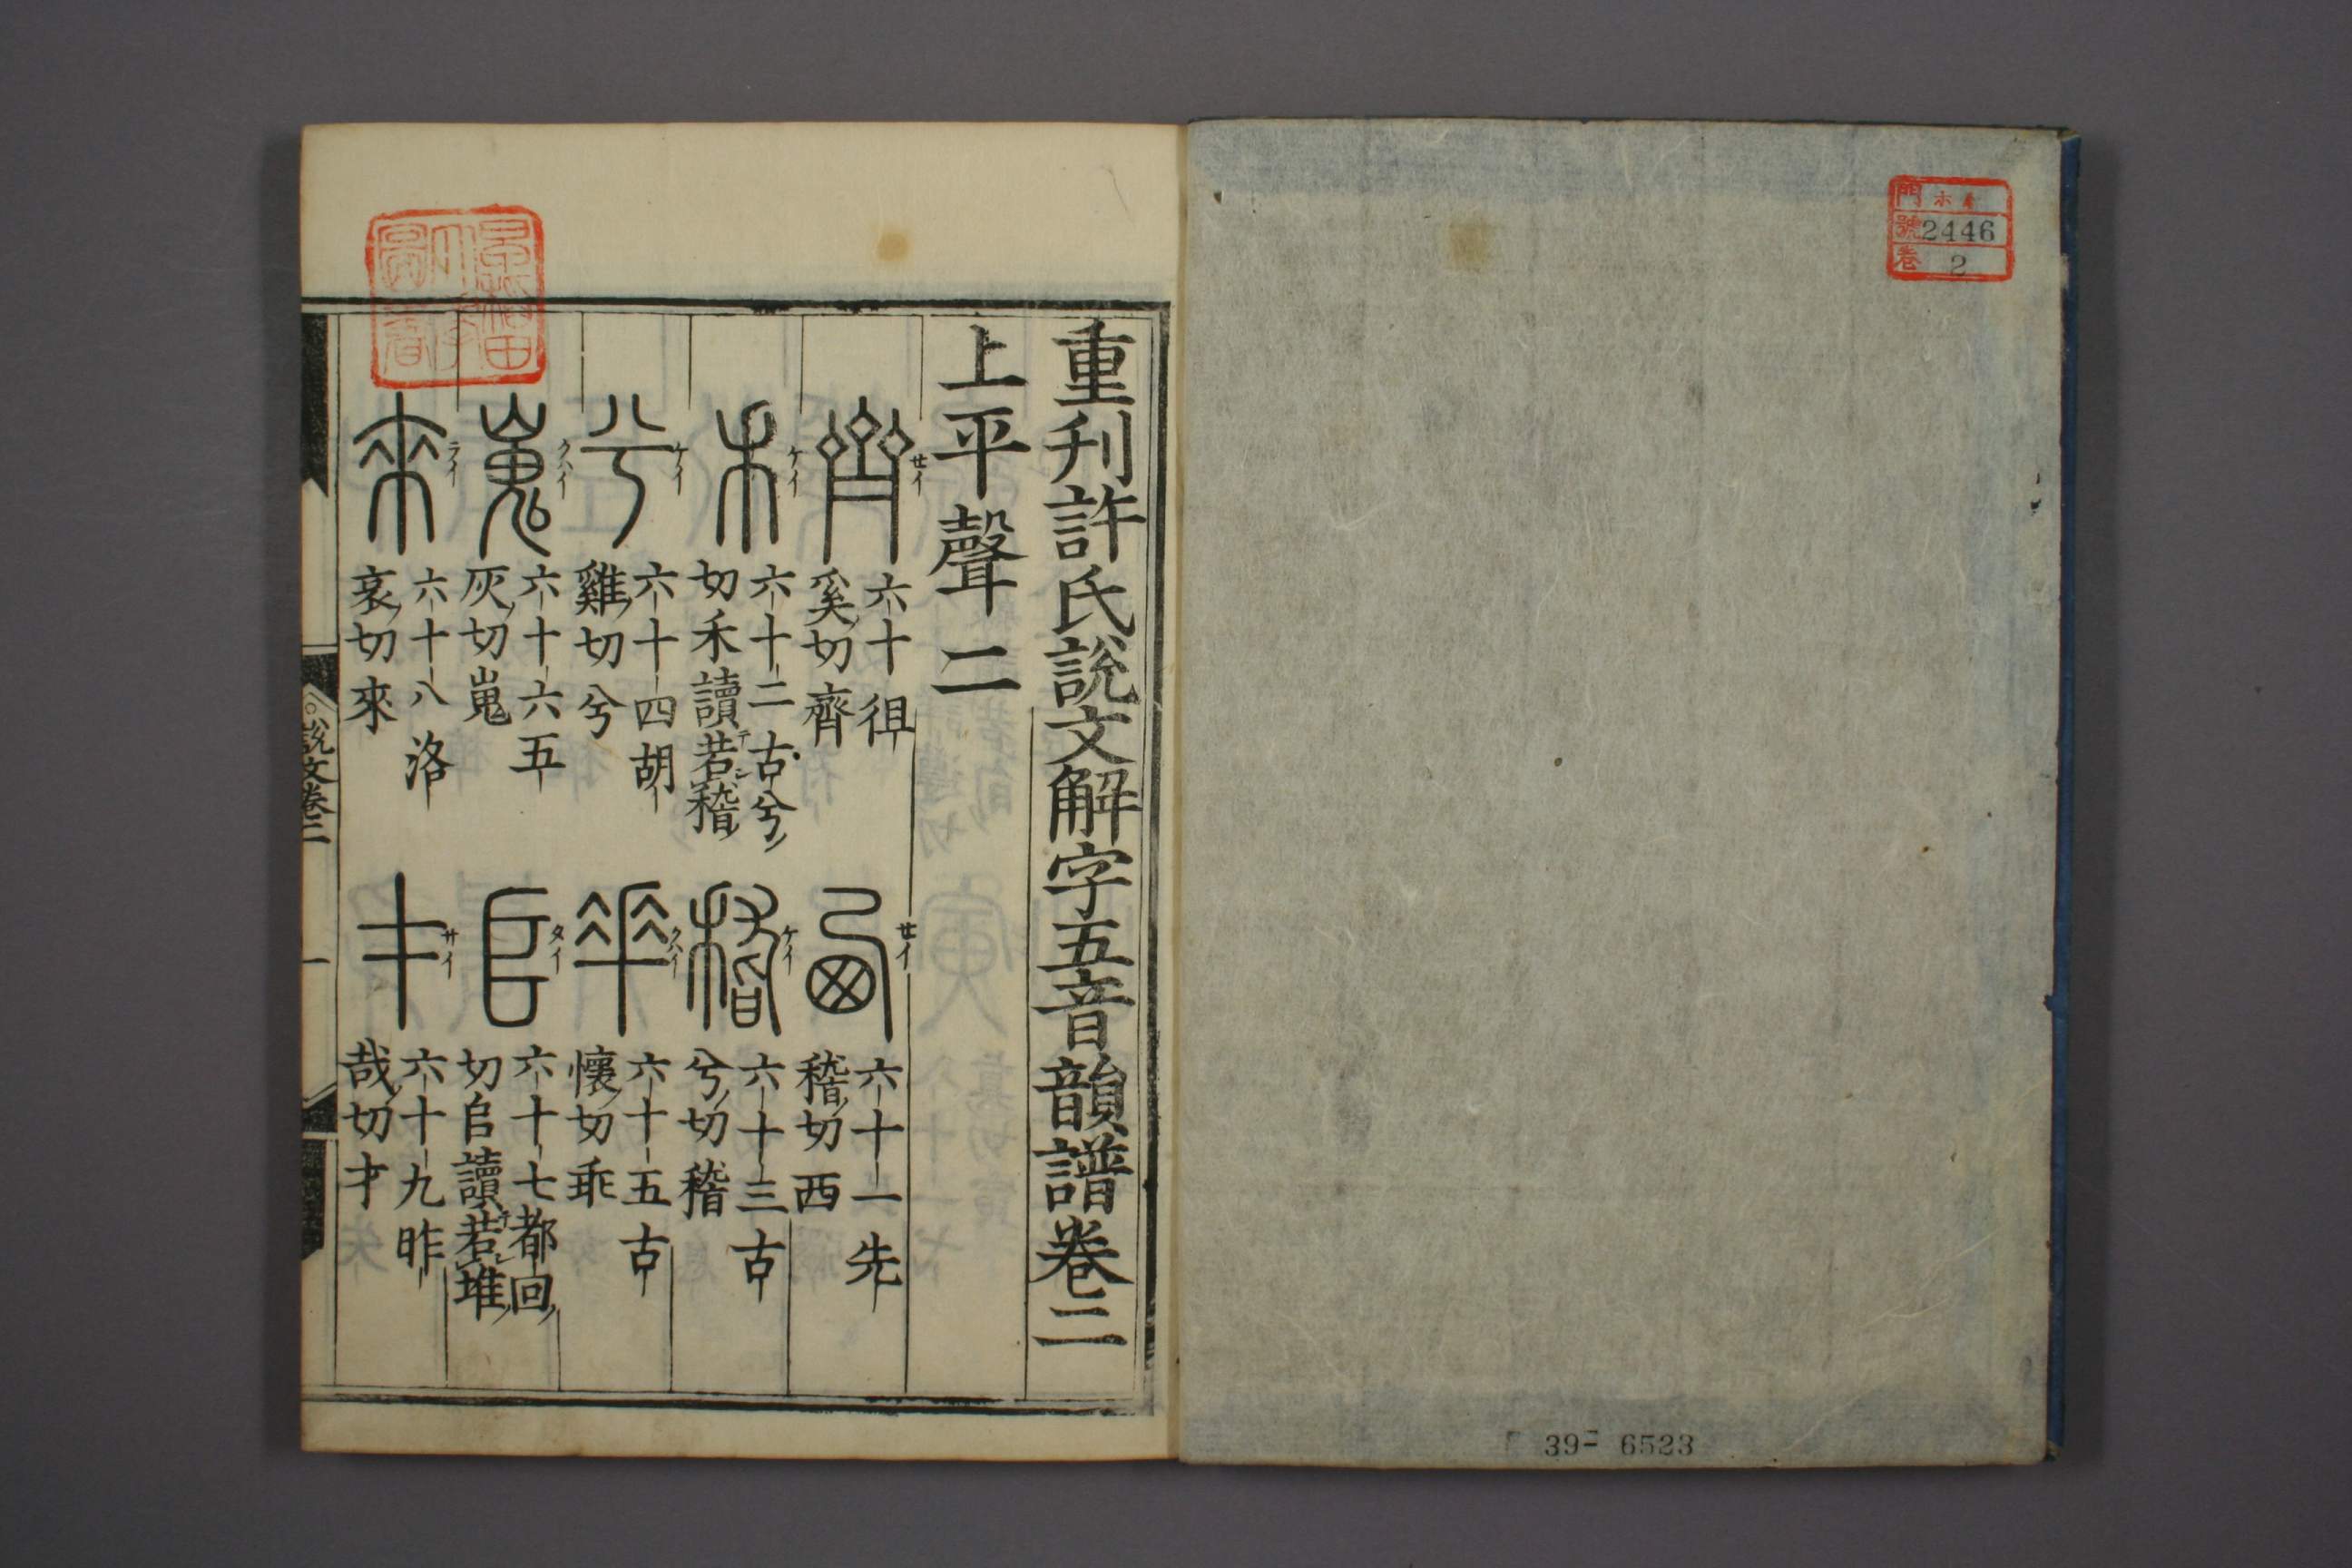 門 ホ
號 2446
卷 2
39- 6523
重刋許氏說文解字五音韻譜卷二
上平聲二
齊 セイ 六十徂奚切齊
西 セイ 六十一先稽切西
禾 ケイ 六十二古兮切禾讀若稽
稽 ケイ 六十三古兮切稽
兮 ケイ 六十四胡雞切兮
乖 クハイ 六十五古懷切乖
嵬 クハイ 六十六五灰切嵬
𠂤 タイ 六十七都回切𠂤讀若堆
來 ライ 六十八洛哀切來
才 サイ 六十九昨哉切才
早稻田大學圖書
說文卷二
一